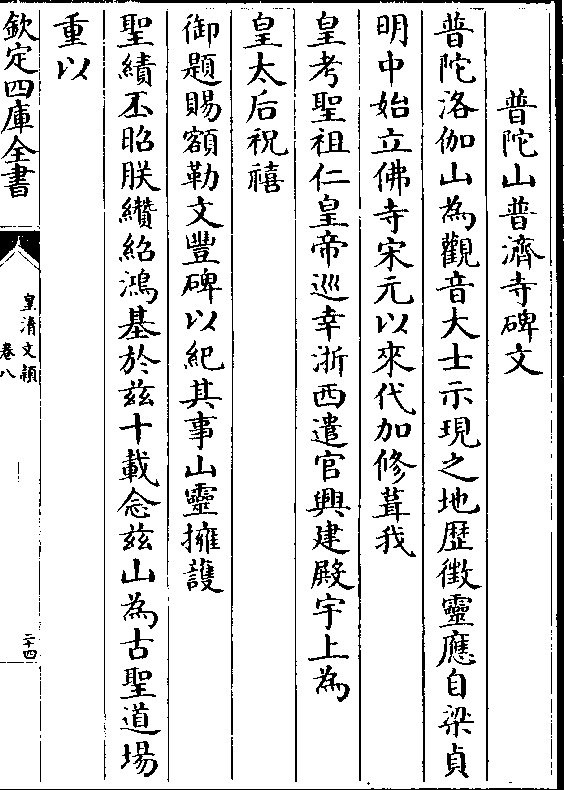 普陀山普濟寺碑文
普陀洛伽山為觀音大士示現之地歴徴靈應自梁貞
明中始立佛寺宋元以來代加修葺我
皇考聖祖仁皇帝巡幸浙西遣官興建殿宇上為
皇太后祝禧
御題賜額勒文豐碑以紀其事山靈擁護
聖績丕昭朕纘紹鴻基於兹十載念兹山為古聖道場
重以
欽定四庫全書
皇清文穎
卷八
二十四